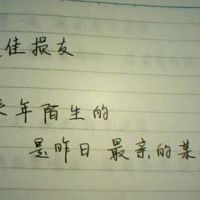 佳损友
年陌生的
是昨日最亲的某